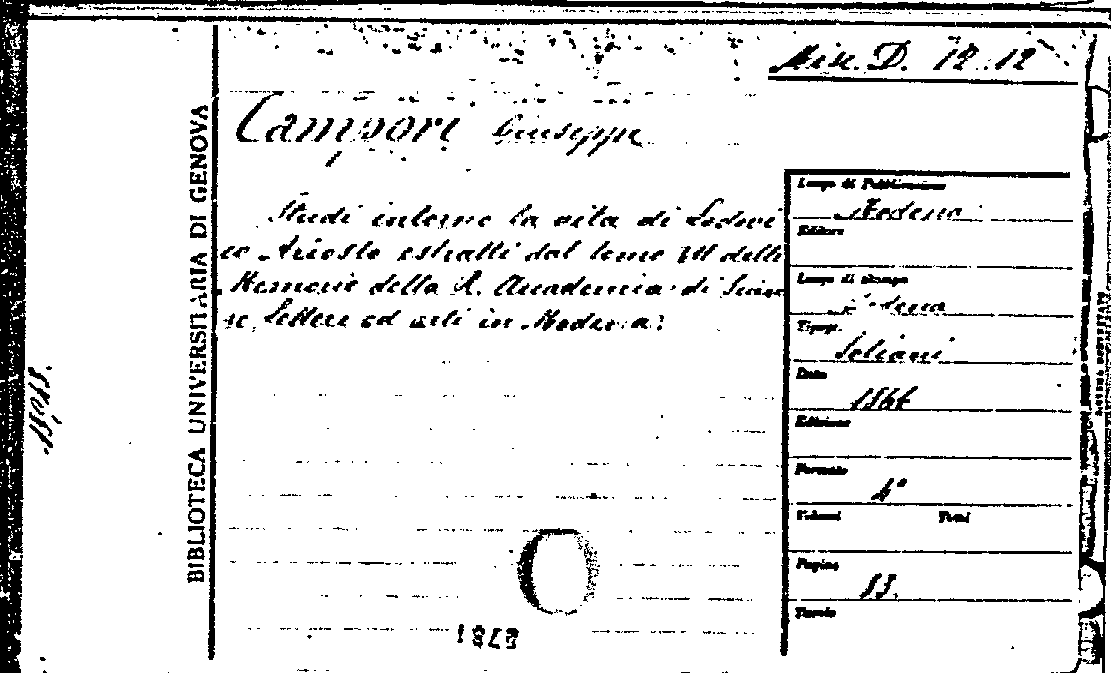 Misc. D. 12.12
Campori Giuseppe
Studi intorno la vita di Lodovi
co Ariosto estratti dal tomo VII delle
Memorie della R. Accademia di Scien
ze, Lettere ed arti in Modena.
BIBLIOTECA UNIVERSITARIA DI GENOVA
Luogo di Pubblicazione
Modena
Editore
Luogo di stampa
Modena
Tipogr.
Soliani
Data
1866
Edizione
Formato
4°
Volumi Tomi
Pagine
53.
Tavole